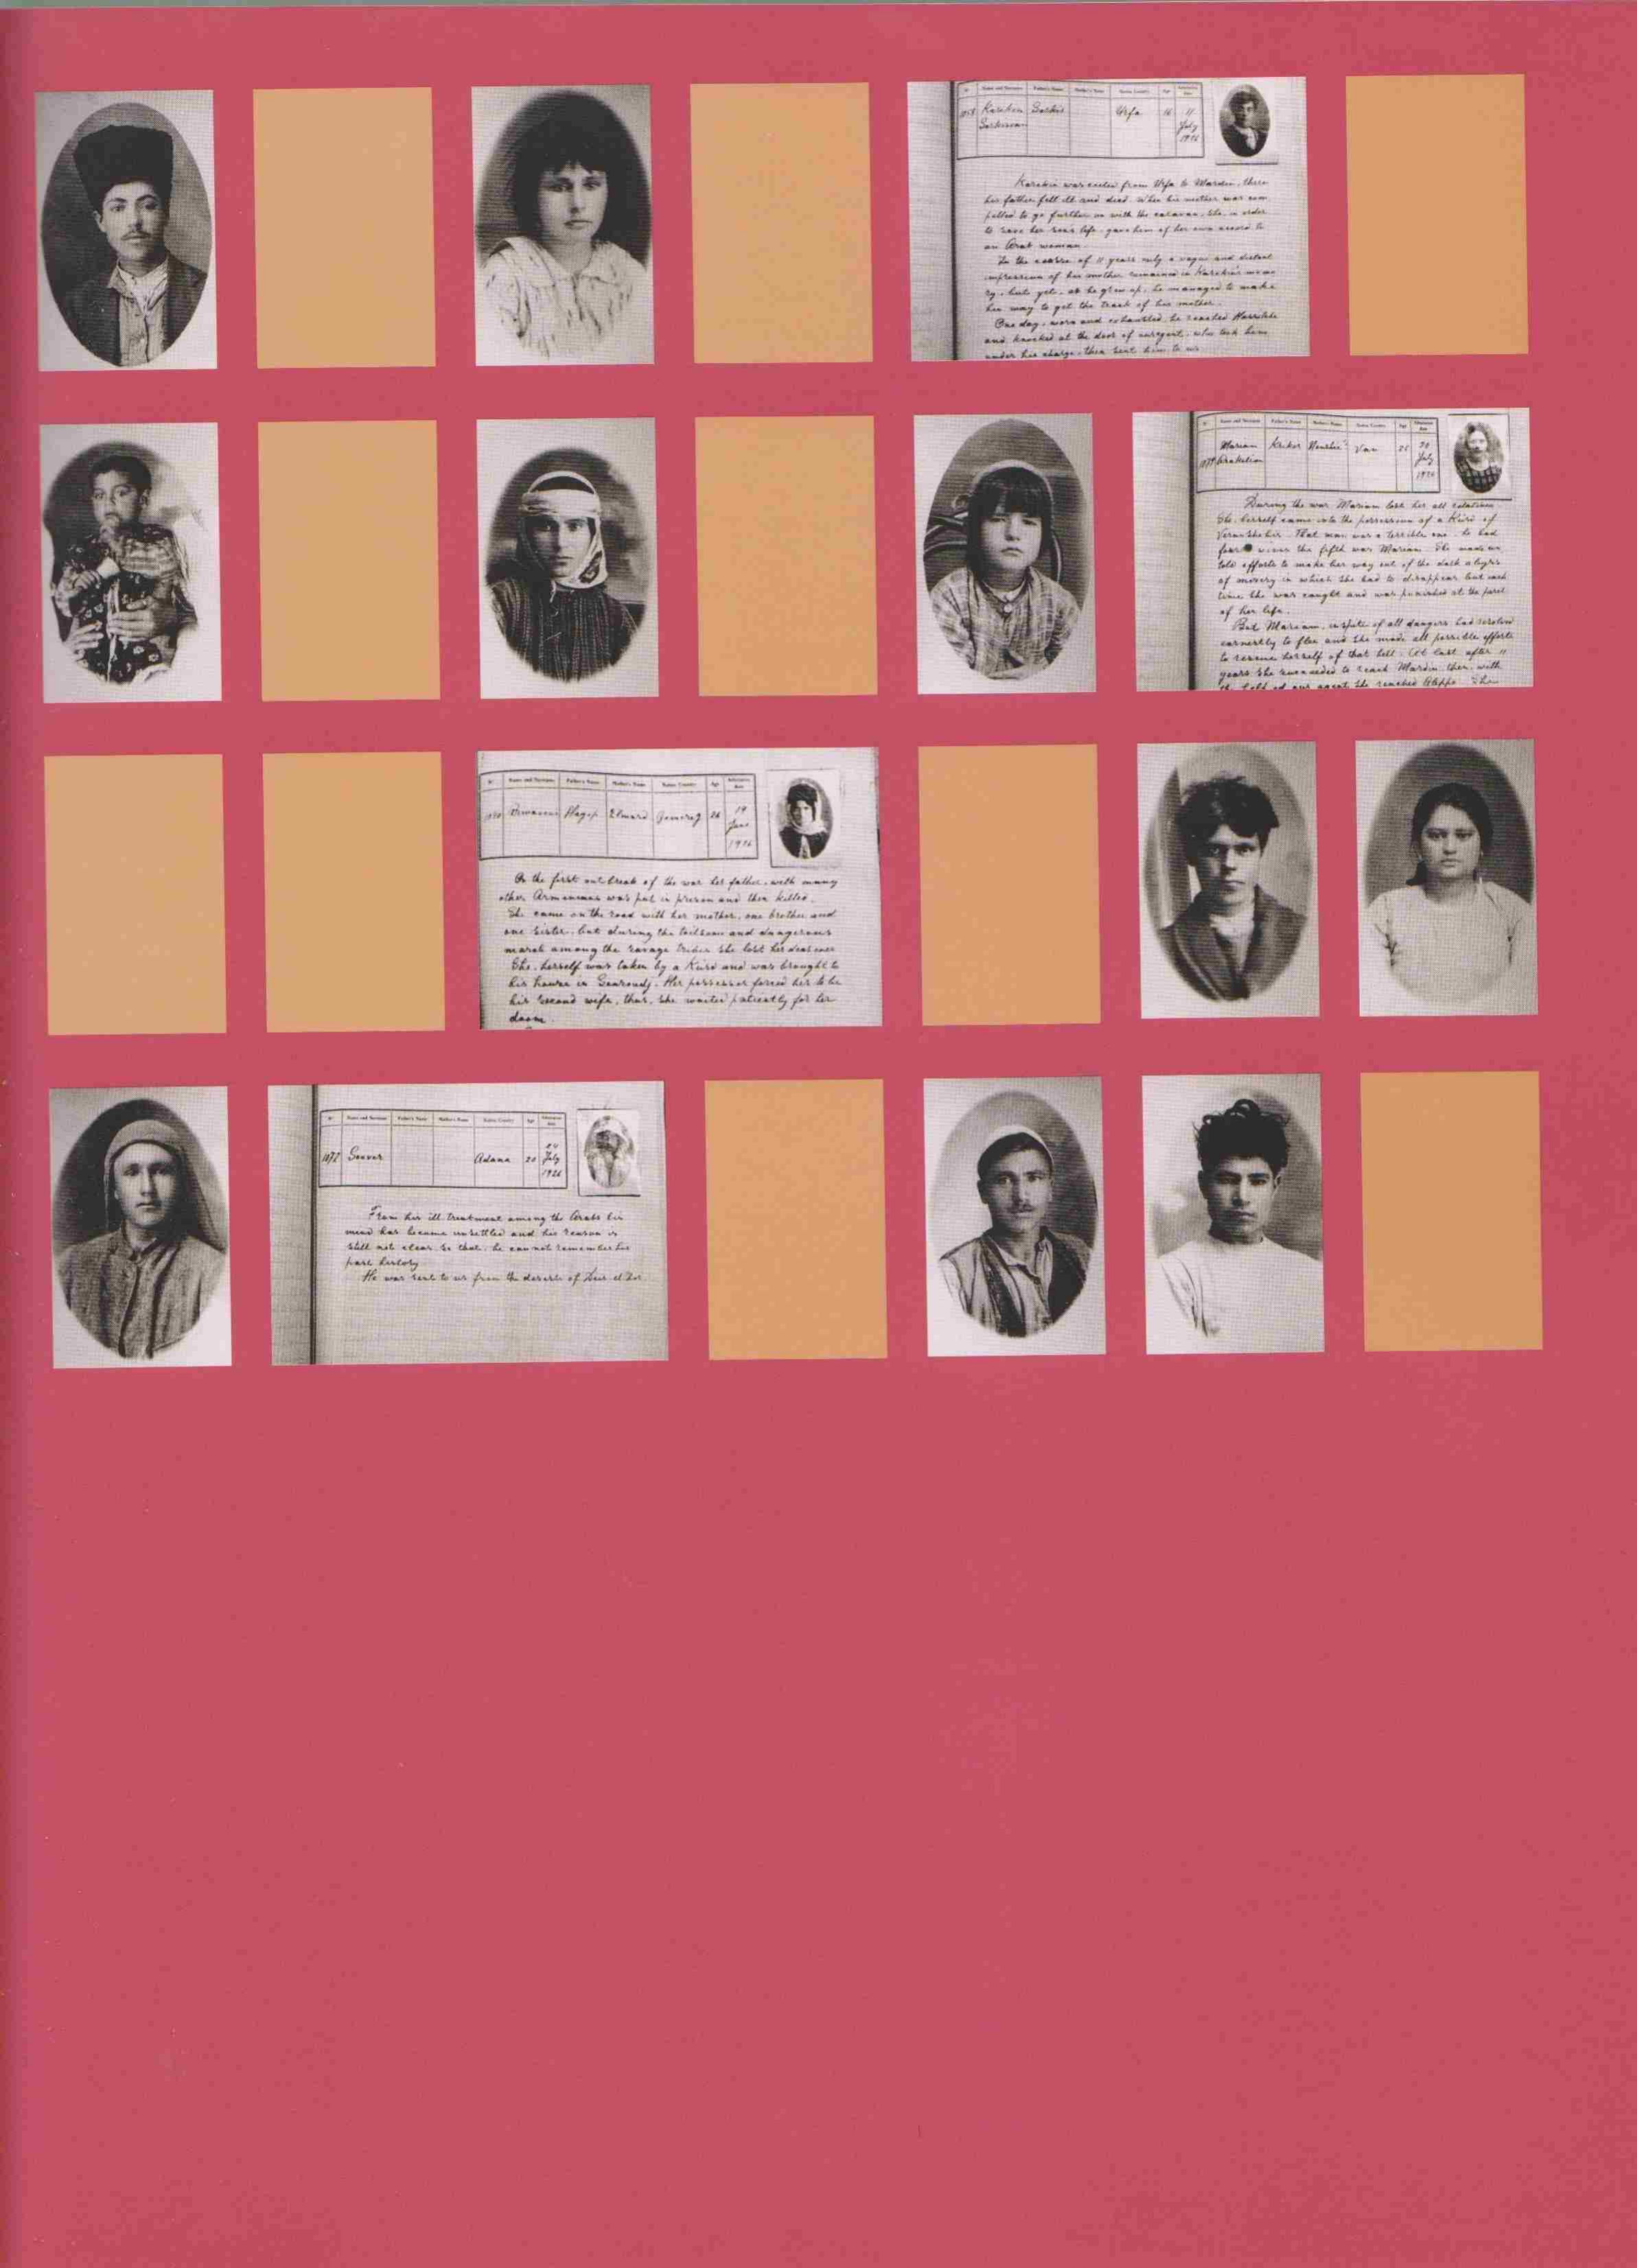 Nº Name and Surname Father's Name Mother's Name Native Country Age Admission Date
1058 Karekin Sarkis Urfa 16 11
Sarkissian July
1926
Karekin was exiled from Urfa to Mardin, there
his father fell ill and died. When his mother was com
pelled to go further on with the caravan, she, in order
to save her son's life, gave him of her own accord to
an Arab woman.
In the course of 11 years only a vague and distant
impression of his mother remained in Karekin's memo
ry, but yet, as he grew up, he managed to make
his way to get the track of his mother.
One day, worn and exhausted, he reached
and knocked at the door of our agent, who took him
under his charge, then sent him to us
Nº Name and Surname Father's Name Mother's Name Native Country Age Admission Date
Mariam Krikor Van 25 20
July
1926
During the war Mariam lost her all relatives.
She herself came into the possession of a Kurd of
That man was a terrible one, he had
four wives the fifth was Mariam. She made un
told efforts to make her way out of the dark abyss
of misery in which she had to disappear, but each
time she was caught and was punished at the peril
of her life.
But Mariam, in spite of all dangers had resolved
earnestly to flee and she made all possible efforts
to rescue herself of that hell. At last after 11
years she succeeded to reach Mardin, then, with
the help of our agent she reached Aleppo. She
Nº Name and Surname Father's Name Mother's Name Native Country Age Admission Date
Hagop Elmard 26 19
June
1926
On the first outbreak of the war her father, with many
other Armenians was put in prison and then killed.
She came on the road with her mother, one brother and
one sister, but during the toilsome and dangerous
march among the savage tribes she lost her dear ones
She herself was taken by a Kurd and was brought to
his house in . Her possessor forced her to be
his second wife, thus, she waited patiently for her
doom.
Nº Name and Surname Father's Name Mother's Name Native Country Age Admission Date
1072 Adana 20 24
July
1926
From his ill treatment among the Arabs his
mind has become unsettled and his reason is
still not clear, so that, he can not remember his
past history
He was sent to us from the deserts of Deir-el-Zor.